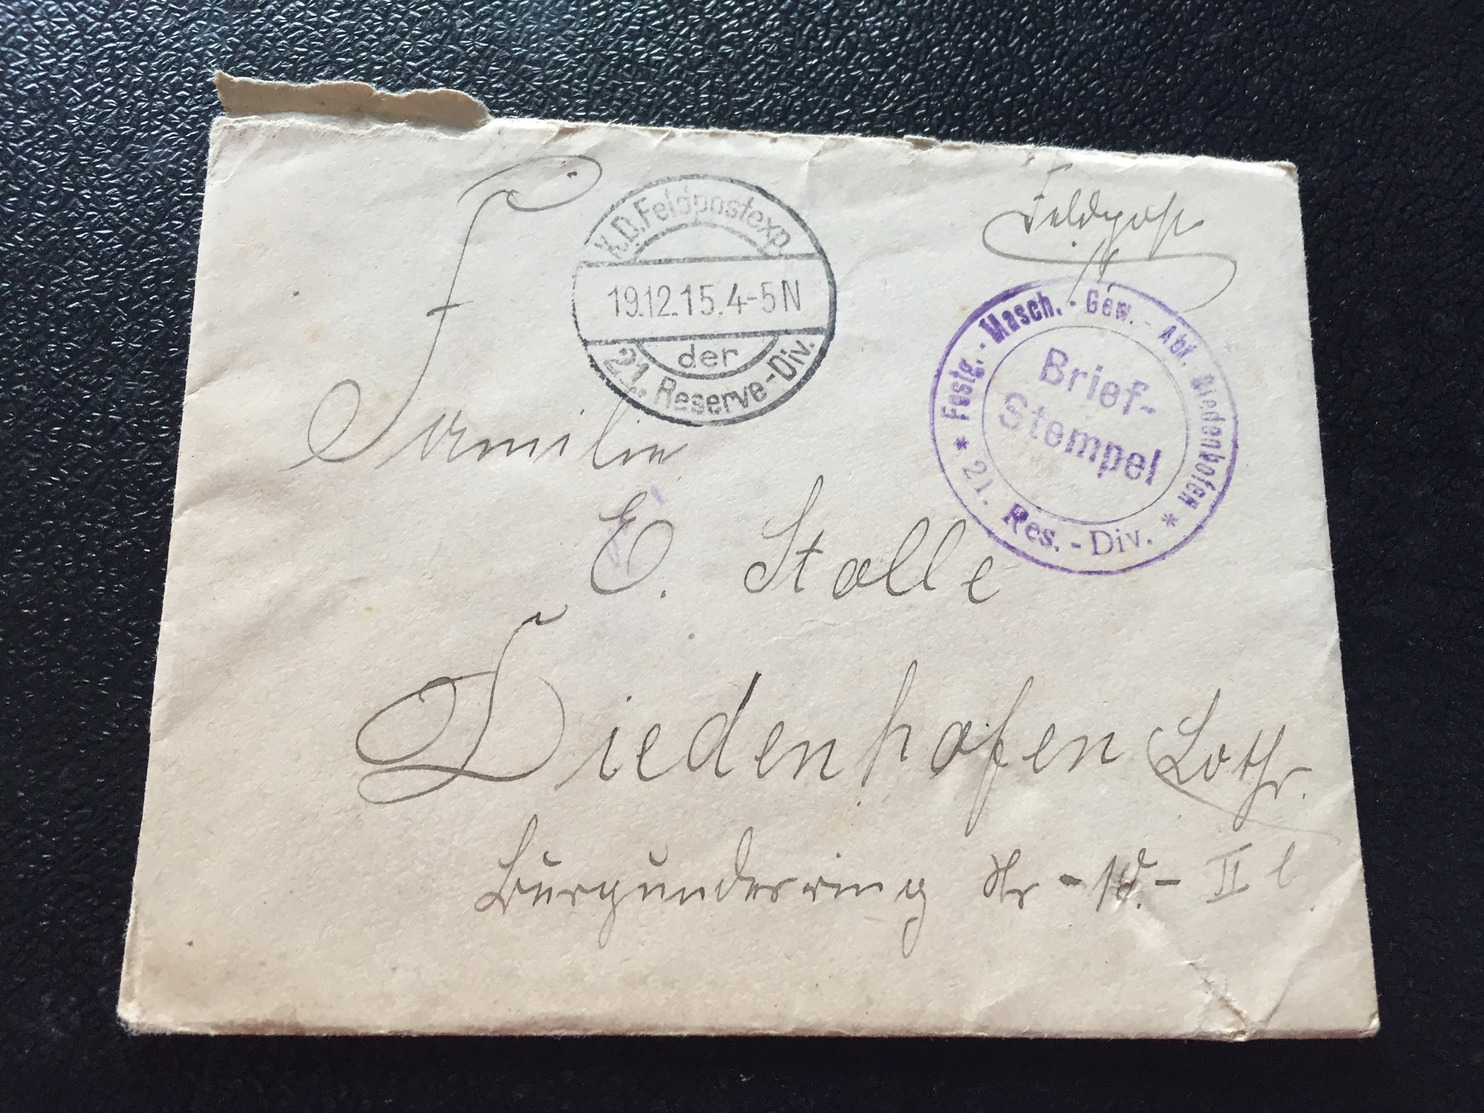 Feldpost
K.D. Feldpostexp.
19.12.15.4-5N
der
21. Reserve-Div.
Festg.-Masch.-Gew.-Abt. Diedenhofen
Brief-
Stempel
* 21. Res.-Div. *
Familie
E. Stolle
Diedenhofen Lothr.
Burgunderring Nr
II